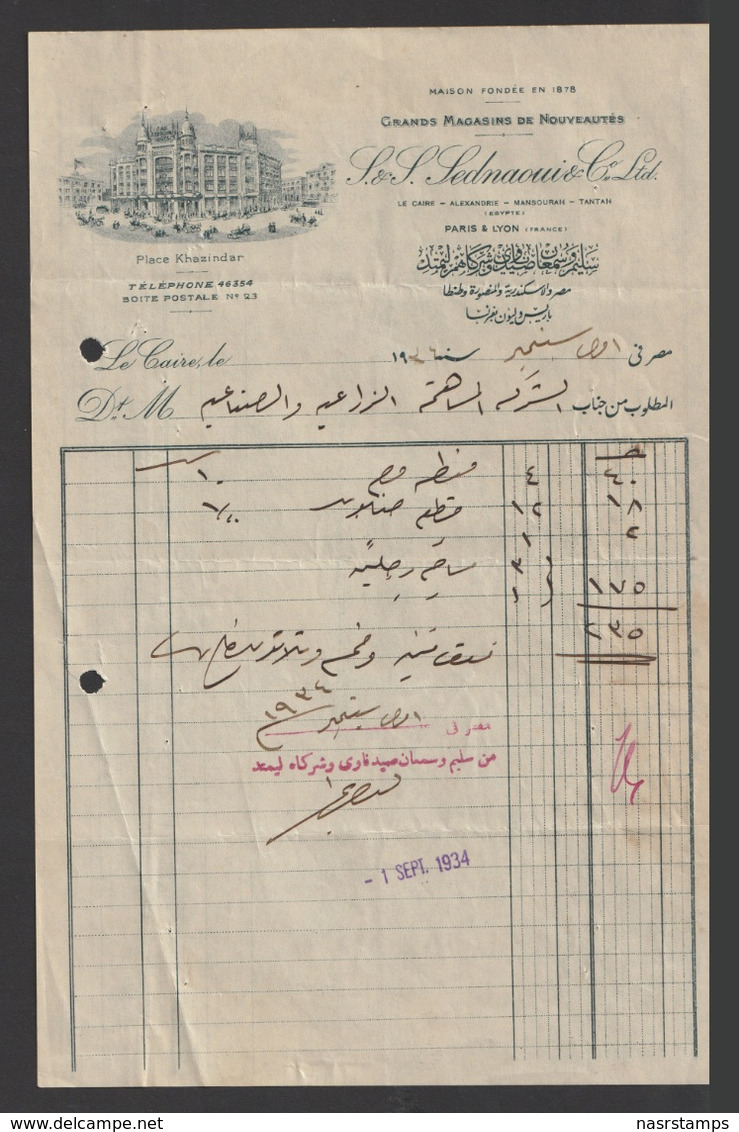 MAISON FONDÉE EN 1878
GRANDS MAGASINS DE NOUVEAUTÉS
S. & S. Sednaoui & Co. Ltd.
LE CAIRE – ALEXANDRIE – MANSOURAH – TANTAH
(EGYPTE)
PARIS & LYON (FRANCE)
سليم وسمعان صيدناوي وشركاهم ليمتد
مصر والاسكندرية والمنصورة وطنطا
باريس وليون بفرنسا
Place Khazindar
TÉLÉPHONE 46354
BOITE POSTALE No 23
Le Caire, le
مصر في اول سبتمبر سنة ١٩٣٤
Dt. M
المطلوب من جناب الشركة المساهمة الزراعية والصناعية
٤٠ ٤ ١٠
١٨ ١٢ قطع
٢
١٧٥
٢٣٥
اول سبتمبر ١٩٣٤
مصر في
من سليم وسمعان صيدناوى وشركاه ليمتد
- 1 SEPT. 1934
nasrstamps